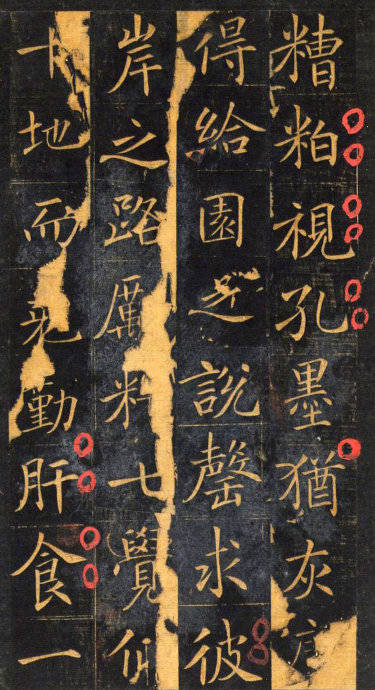 糟粕視孔墨猶灰
得給園之說罄求彼
岸之路厲七覺
十地而克勤肝食一